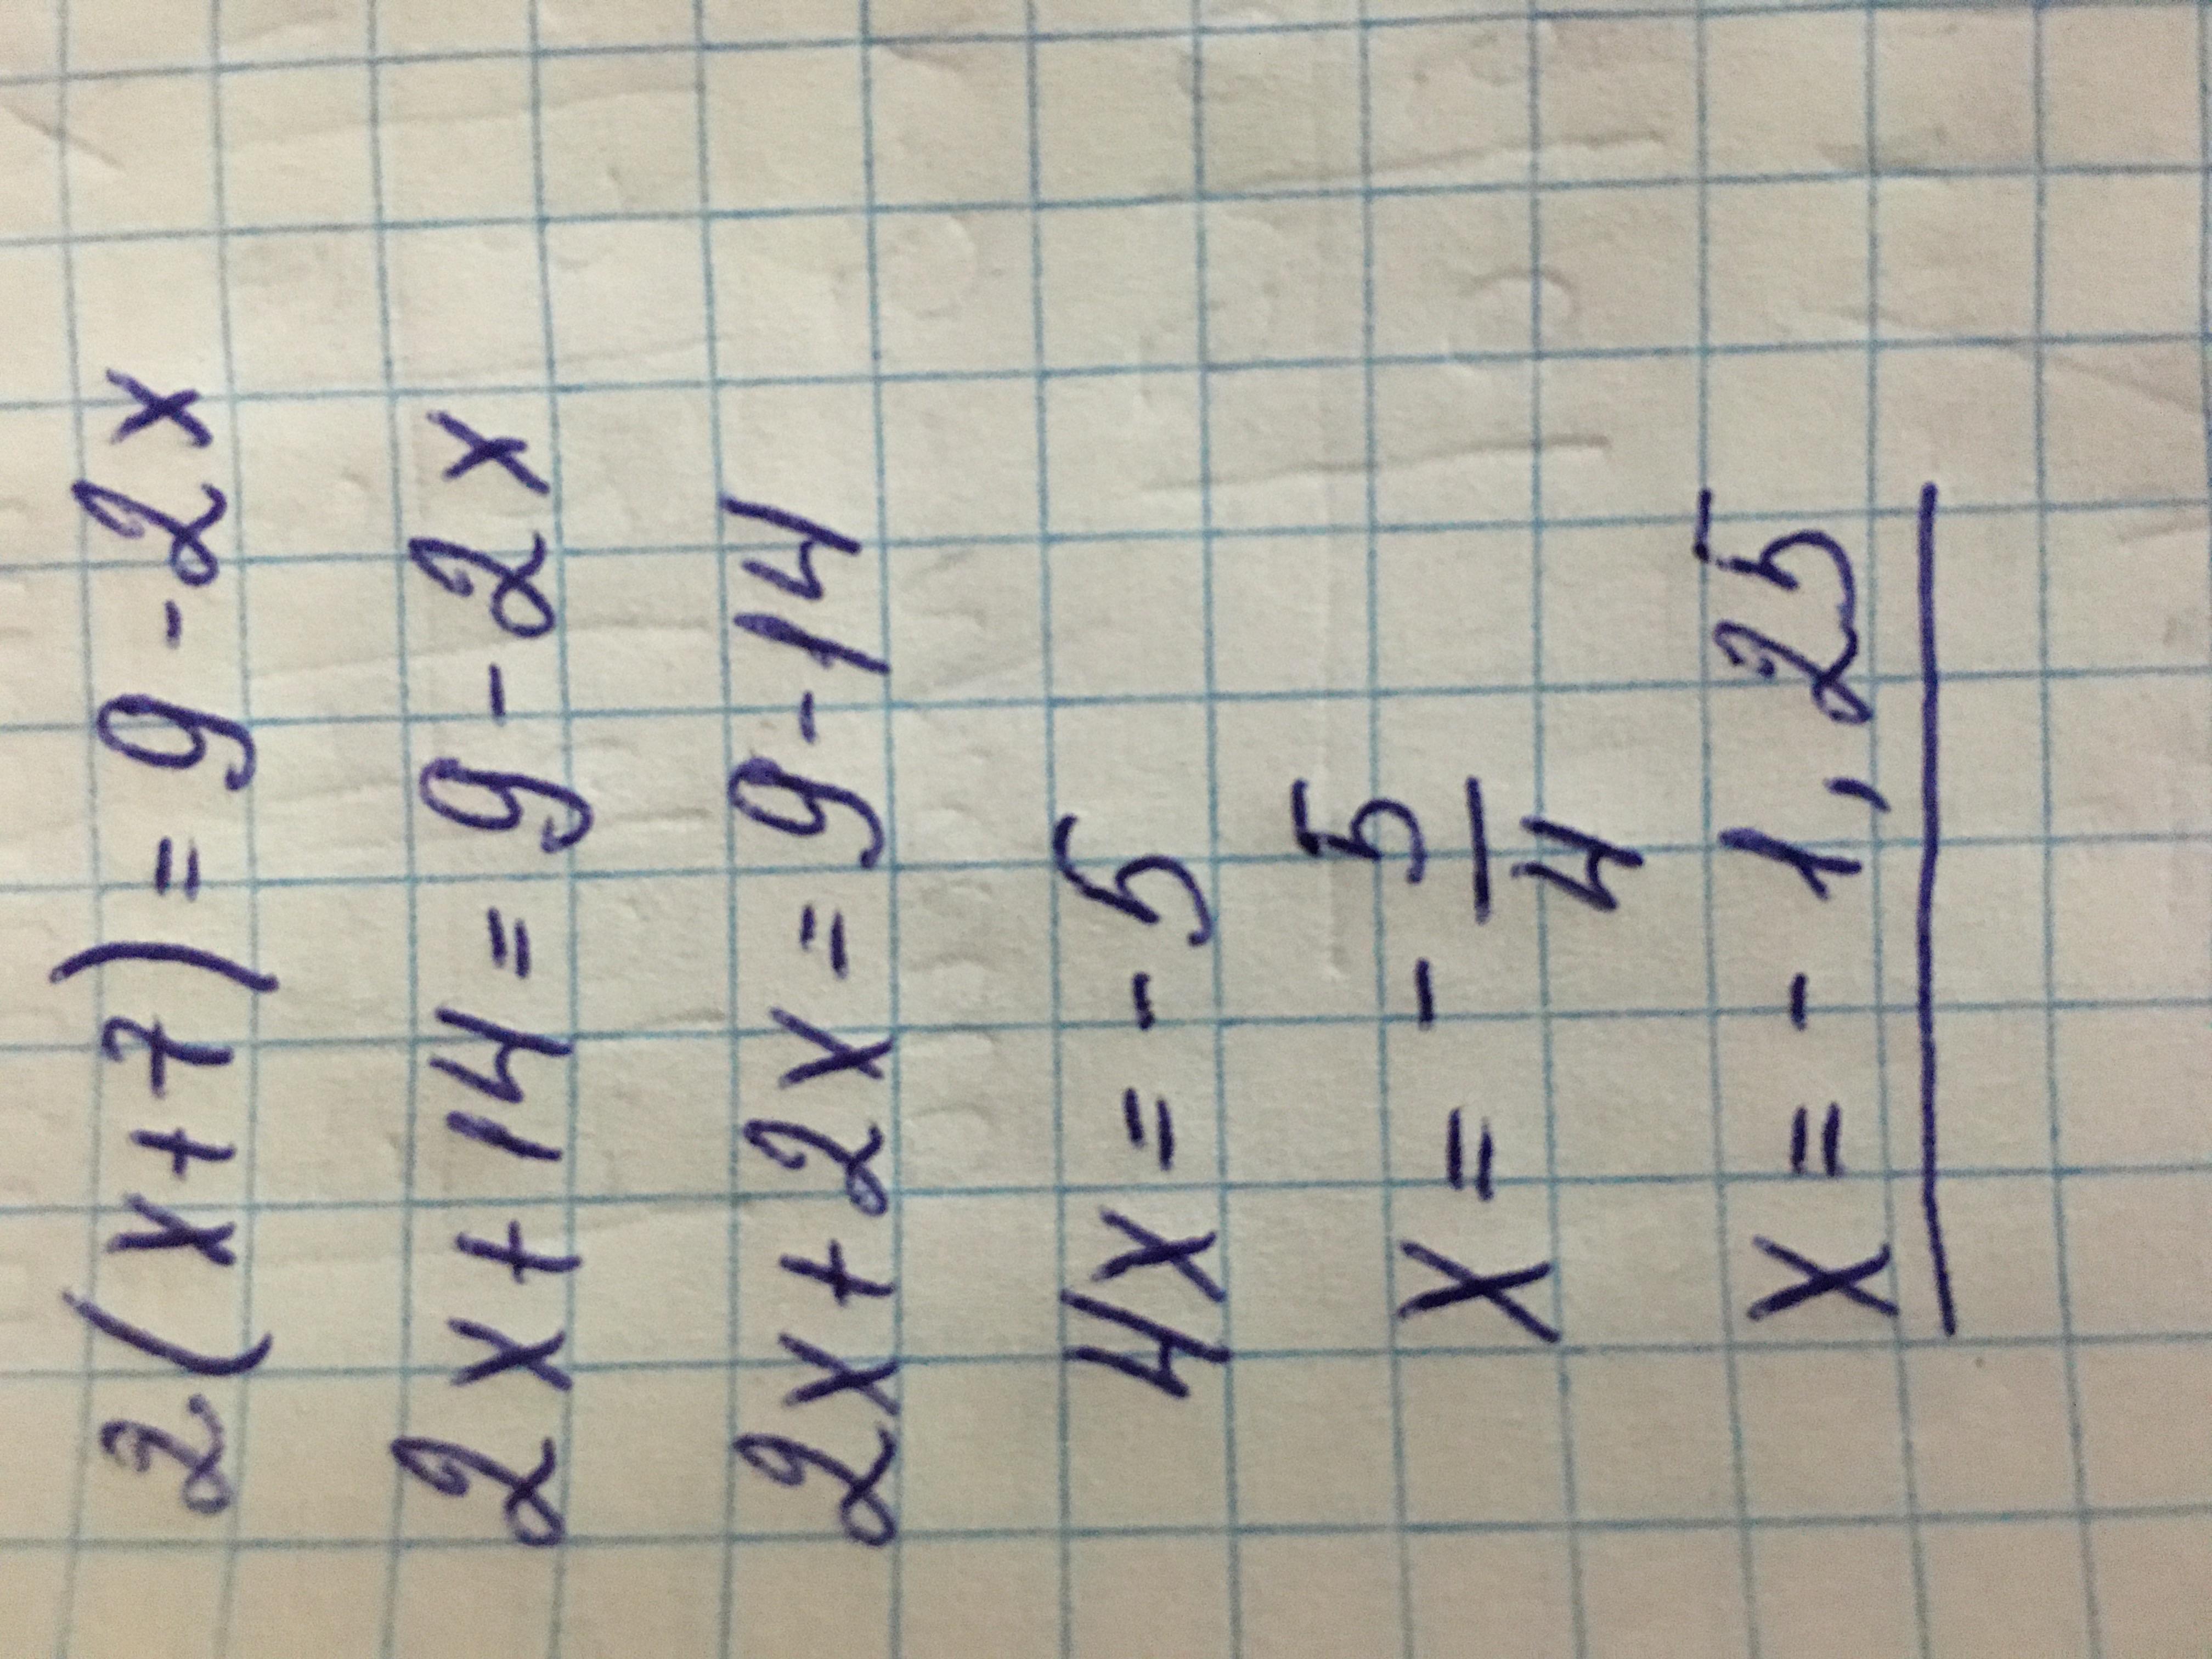 2(x+7)=9-2x
2x+14=9-2x
2x+2x=9-14
4x=-5
x=-5/4
x=-1,25